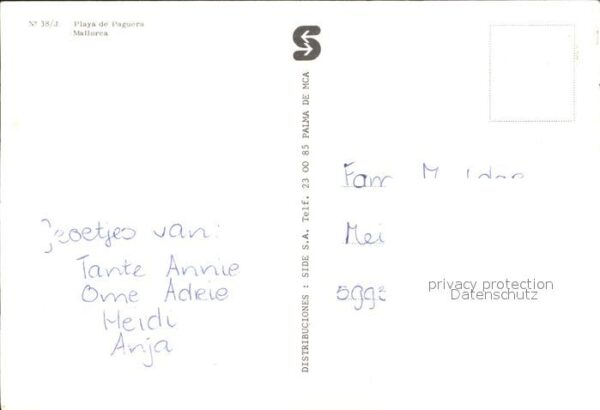 Nº 38/J. Playa de Paguera
Mallorca
DISTRIBUCIONES : SIDE S.A. Telf. 23 00 85 PALMA DE MCA
Groetjes van:
Tante Annie
Ome Adrie
Heidi
Anja
Fam M
Mei
privacy protection
Datenschutz